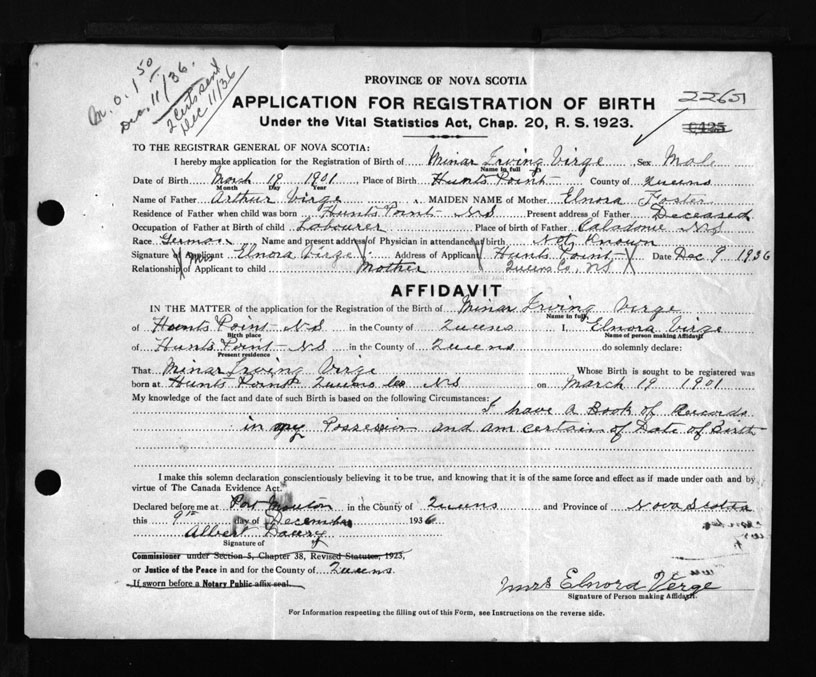 M. O. 1.50
Dec. 11/36.
2 Cert. sent
Dec 11/36
PROVINCE OF NOVA SCOTIA
APPLICATION FOR REGISTRATION OF BIRTH
22651
Under the Vital Statistics Act, Chap. 20, R. S. 1923.
TO THE REGISTRAR GENERAL OF NOVA SCOTIA:
I hereby make application for the Registration of Birth of Minar Irving Virge Sex Male
Name in full
Date of Birth March 19 1901 Place of Birth Hunts Point County of Queens
Month Day Year
Name of Father Arthur Virge MAIDEN NAME of Mother Elnora Foster
Residence of Father when child was born Hunts Point NS Present address of Father Deceased
Occupation of Father at Birth of child Labourer Place of birth of Father Caladonie NS
Race German Name and present address of Physician in attendance at birth Not Known
Signature of Applicant Mrs Elnora Virge Address of Applicant Hunts Point Date Dec 9 1936
Relationship of Applicant to child Mother Queens Co. NS
AFFIDAVIT
IN THE MATTER of the application for the Registration of the Birth of Minar Irving Virge
Name in full
of Hunts Point NS in the County of Queens I, Elnora Virge
Birth place Name of person making Affidavit
of Hunts Point NS in the County of Queens do solemnly declare:
Present residence
That Minar Irving Virge Whose Birth is sought to be registered was
born at Hunts Point Queens Co NS on March 19 1901
My knowledge of the fact and date of such Birth is based on the following Circumstances:
I have a Book of Records
in my Possession and am certain of Date of Birth
I make this solemn declaration conscientiously believing it to be true, and knowing that it is of the same force and effect as if made under oath and by
virtue of The Canada Evidence Act.
Declared before me at Port Mouton in the County of Queens and Province of Nova Scotia
this 9th day of December 1936
Albert
Signature of
Commissioner under Section 5, Chapter 38, Revised Statutes, 1923,
or Justice of the Peace in and for the County of Queens
If sworn before a Notary Public affix seal.
Mrs Elnora Verge
Signature of Person making Affidavit.
For Information respecting the filling out of this Form, see Instructions on the reverse side.